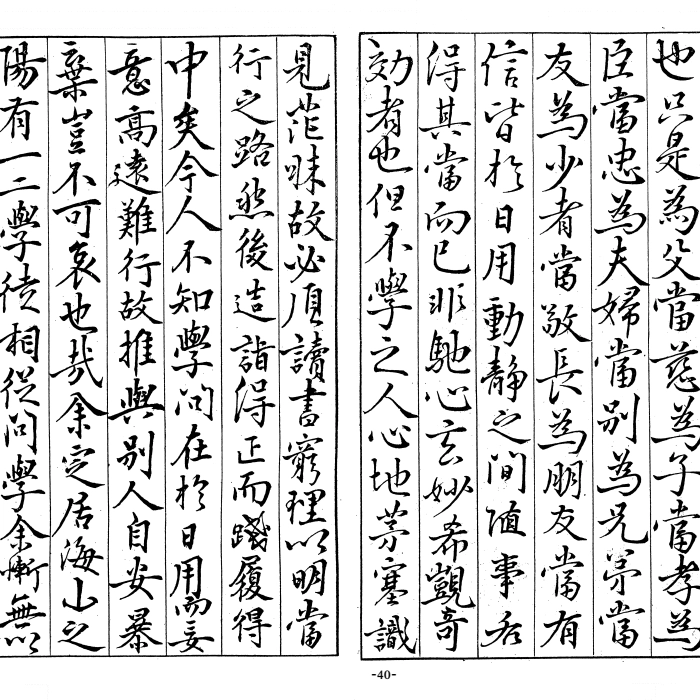 也只是為父當慈為子當孝為
臣當忠為夫婦當別為兄弟當
友為少者當敬長為朋友當有
信皆於日用動靜之間隨事各
得其當而已非馳心玄妙希覬奇
効者也但不學之人心地茅塞識
見茫昧故必須讀書窮理以明當
行之路然後造詣得正而踐履得
中矣今人不知學問在於日用而妄
意高遠難行故推與別人自安暴
棄豈不可哀也哉余定居海山之
陽有一二學徒相從問學余慚無以
-40-